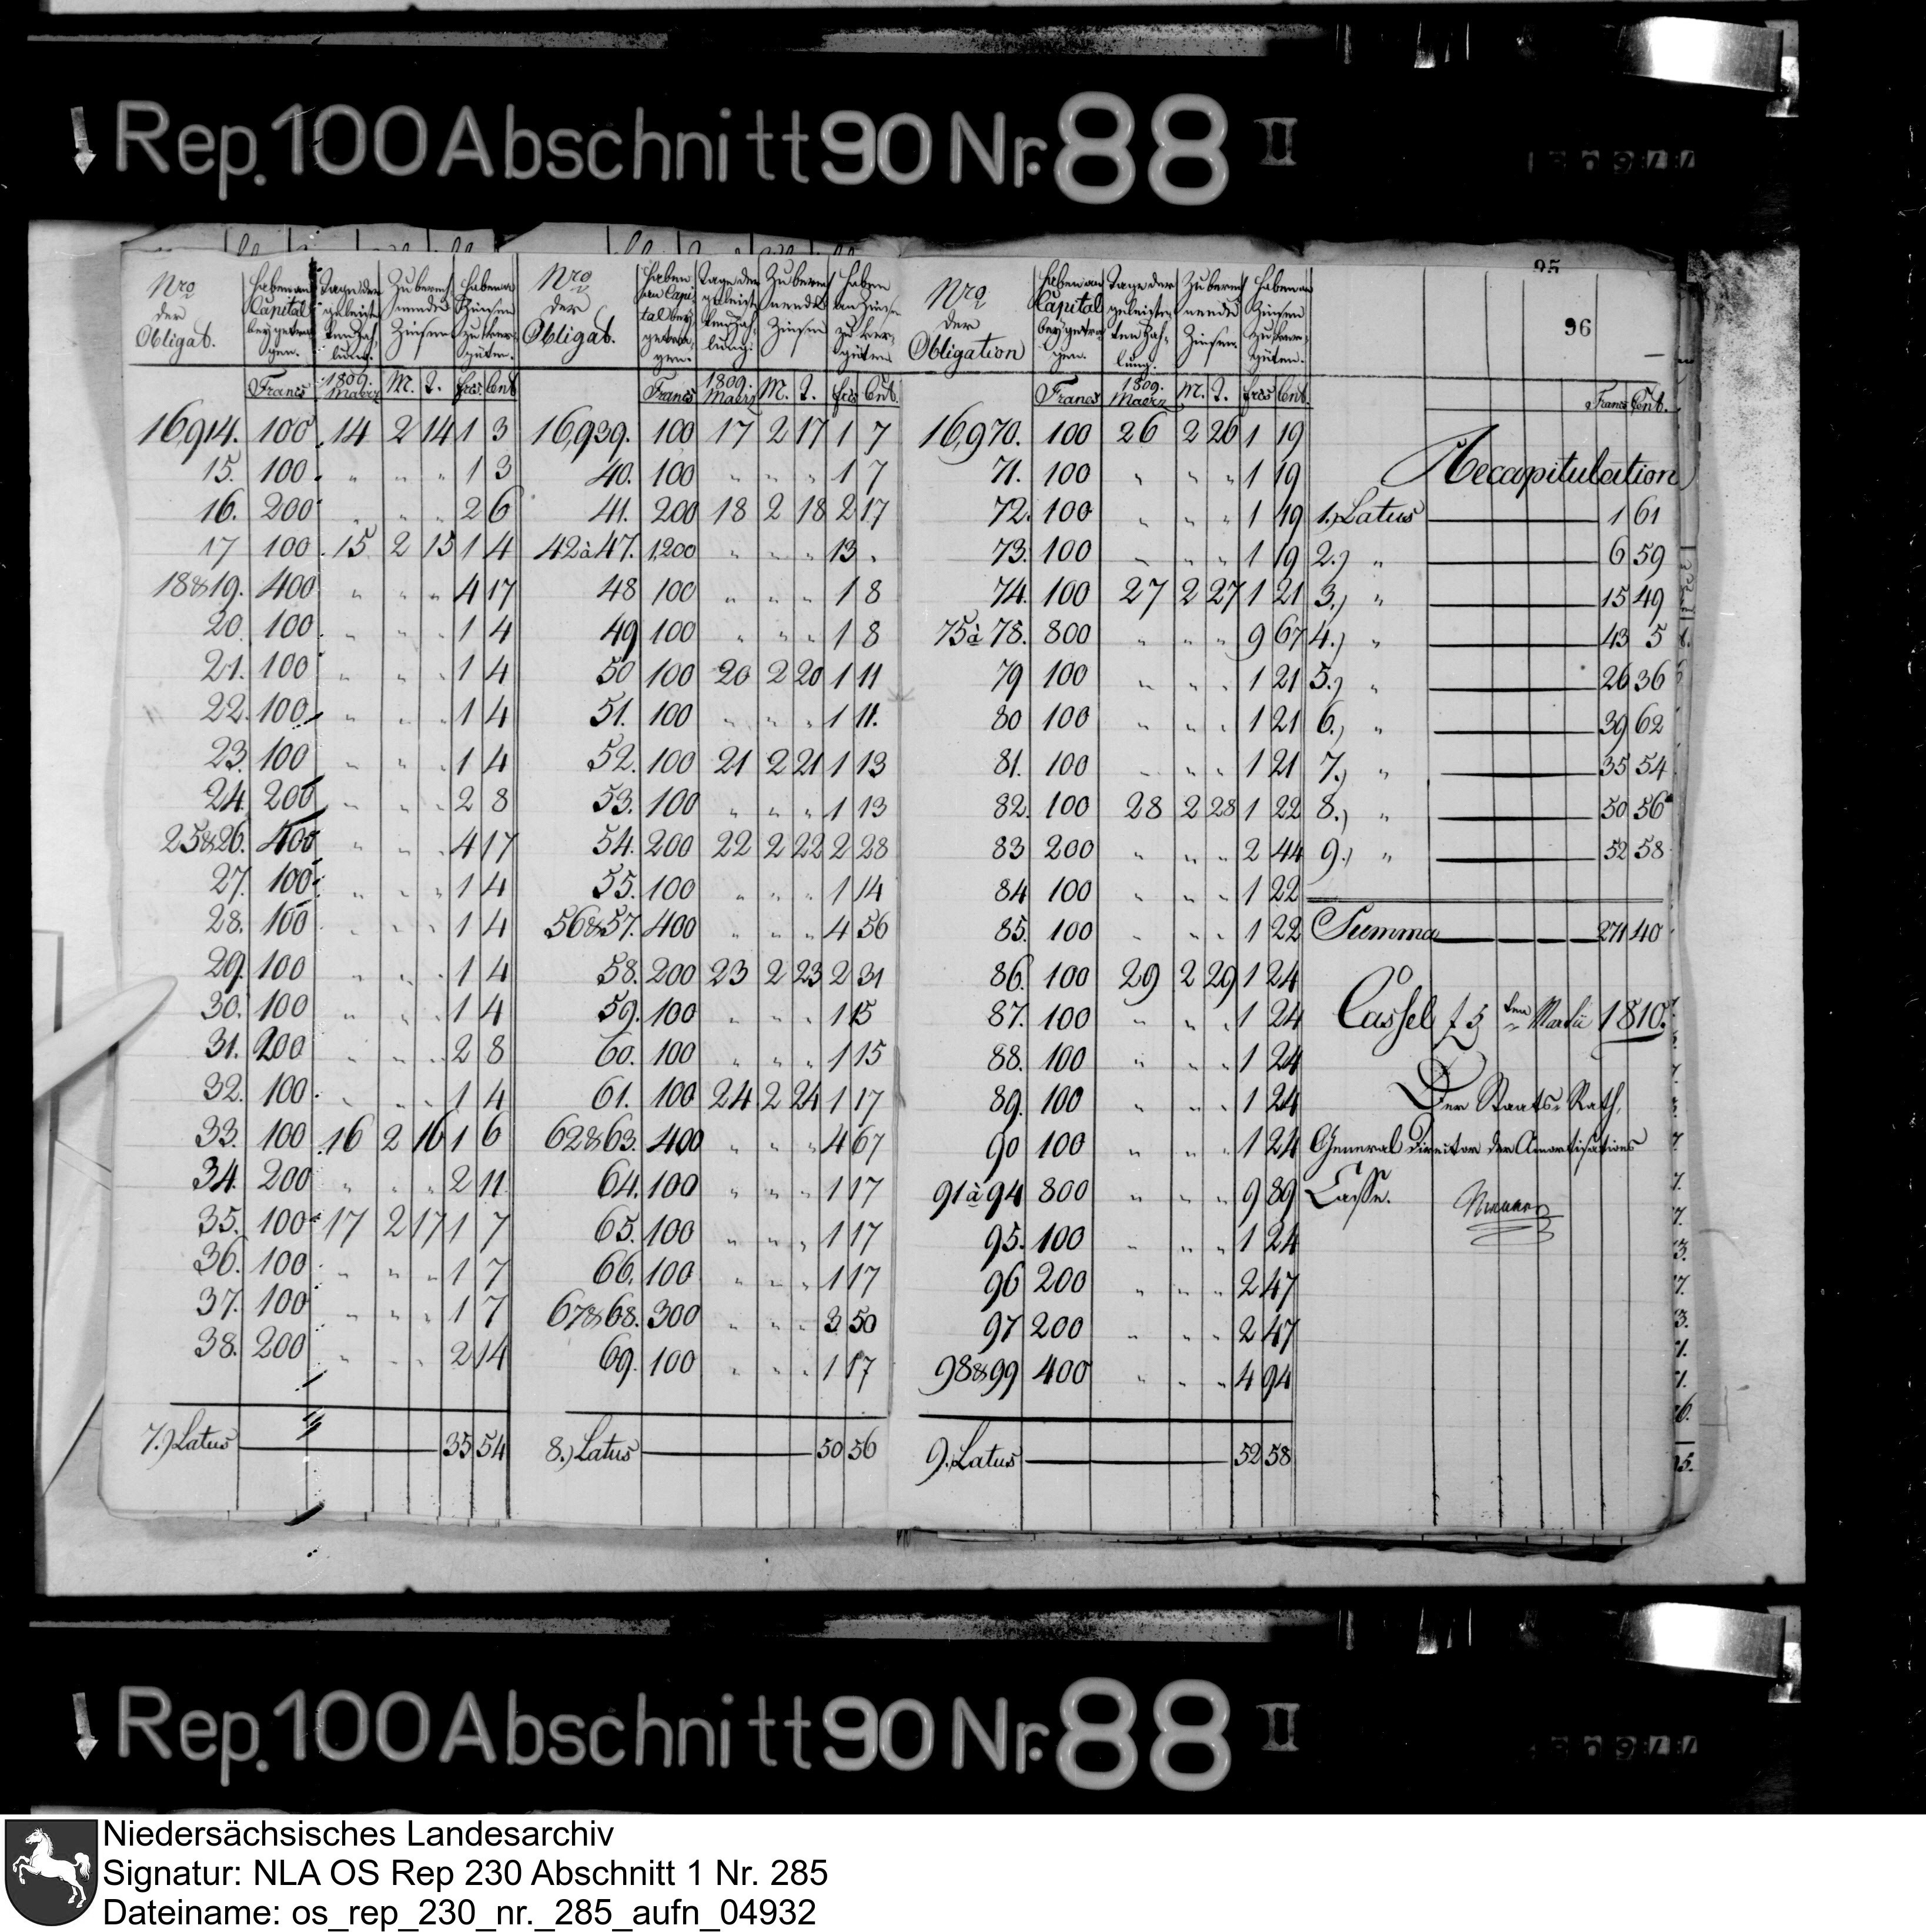 Rep. 100 Abschnitt 90 Nr. 88 II
95
96
Nro der Obligat.
Haben an Capital beygetragen.
Tage der geleisteten Zahlung.
Zu berechnende Zinsen
Haben an Zinsen zu vergüten.
Francs 1809. Maerz M. T. frcs. Cent
16,914. 100 14 2 14 1 3
15. 100 " " " 1 3
16. 200 " " " 2 6
17 100 15 2 15 1 4
18&19. 400 " " " 4 17
20. 100 " " " 1 4
21. 100 " " " 1 4
22. 100 " " " 1 4
23. 100 " " " 1 4
24. 200 " " " 2 8
25&26. 400 " " " 4 17
27. 100 " " " 1 4
28. 100 " " " 1 4
29. 100 " " " 1 4
30. 100 " " " 1 4
31. 200 " " " 2 8
32. 100 " " " 1 4
33. 100 16 2 16 1 6
34. 200 " " " 2 11
35. 100 17 2 17 1 7
36. 100 " " " 1 7
37. 100 " " " 1 7
38. 200 " " " 2 14
7.) Latus 35 54
Nro der Obligat.
Haben an Capital beygetragen.
Tage der geleist. Zahlung.
Zu berechnende Zinsen
Haben an Zinsen zu vergüten
Francs 1809. Maerz M. T. frcs Cent.
16,939. 100 17 2 17 1 7
40. 100 " " " 1 7
41. 200 18 2 18 2 17
42 à 47. 1,200 " " " 13 "
48 100 " " " 1 8
49 100 " " " 1 8
50 100 20 2 20 1 11
51. 100 " " " 1 11.
52. 100 21 2 21 1 13
53. 100 " " " 1 13
54. 200 22 2 22 2 28
55. 100 " " " 1 14
56&57. 400 " " " 4 56
58. 200 23 2 23 2 31
59. 100 " " " 1 15
60. 100 " " " 1 15
61. 100 24 2 24 1 17
62&63. 400 " " " 4 67
64. 100 " " " 1 17
65. 100 " " " 1 17
66. 100 " " " 1 17
67&68. 300 " " " 3 50
69. 100 " " " 1 17
8.) Latus 50 56
Nro der Obligation
Haben an Capital beygetragen.
Tage der geleisteten Zahlung.
Zu berechnende Zinsen.
Haben an Zinsen zu vergüten.
Francs 1809. Maerz M. T. frcs Cent.
16,970. 100 26 2 26 1 19
71. 100 " " " 1 19
72. 100 " " " 1 19
73. 100 " " " 1 19
74. 100 27 2 27 1 21
75 à 78. 800 " " " 9 67
79 100 " " " 1 21
80 100 " " " 1 21
81. 100 " " " 1 21
82. 100 28 2 28 1 22
83 200 " " " 2 44
84 100 " " " 1 22
85. 100 " " " 1 22
86. 100 29 2 29 1 24
87. 100 " " " 1 24
88. 100 " " " 1 24
89. 100 " " " 1 24
90 100 " " " 1 24
91 à 94 800 " " " 9 89
95. 100 " " " 1 24
96 200 " " " 2 47
97 200 " " " 2 47
98&99 400 " " " 4 94
9.) Latus 52 58
Francs Cent.
Recapitulation
1.) Latus 1 61
2.) " 6 59
3.) " 15 49
4.) " 43 5
5.) " 26 36
6.) " 39 62
7.) " 35 54
8.) " 50 56
9.) " 52 58
Summa 271 40
Cassel 1810.
Der Staats-Rath,
General Director der Amortisations
Casse.
Rep. 100 Abschnitt 90 Nr. 88 II
Niedersächsisches Landesarchiv
Signatur: NLA OS Rep 230 Abschnitt 1 Nr. 285
Dateiname: os_rep_230_nr._285_aufn_04932